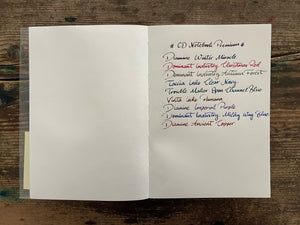 # CD Notebook Premium #
Diamine Winter Miracle
Dominant Industry, Christmas Red
Dominant Industry, Autumn Forest
Taccia Aoko Clear Navy
Trouble Maker Boon Channel Blue
Vinta Lake Humana
Diamine Imperial Purple
Dominant Industry, Milky Way Blue
Diamine Ancient Copper